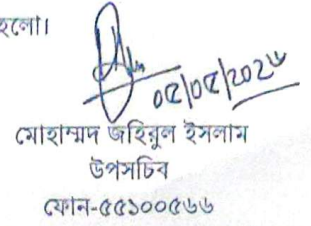 হলো।
০৫/০৫/২০২৬
মোহাম্মদ জহিরুল ইসলাম
উপসচিব
ফোন-৫৫১০০৫৬৬